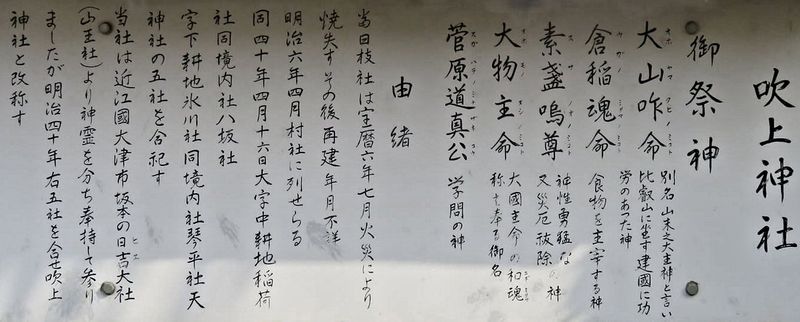 吹上神社
御祭神
大山咋命
別名山末之大主神と言い
比叡山に坐す建國に功
労のあった神
倉稲魂命
食物を主宰する神
素盞嗚尊
神性勇猛な神
又災厄祓除の神
大物主命
大國主命の和魂
称せ奉る御名
菅原道真公
学問の神
由緒
当日枝社は宝暦六年七月火災により
焼失すその後再建年月不詳
明治六年四月村社に列せらる
同四十年四月十六日大字中耕地稲荷
社同境内社八坂社
字下耕地氷川社同境内社琴平社天
神社の五社を合祀す
当社は近江國大津市坂本の日吉大社
(山王社)より神霊を分ち奉持して参り
ましたが明治四十年右五社を合せ吹上
神社と改称す